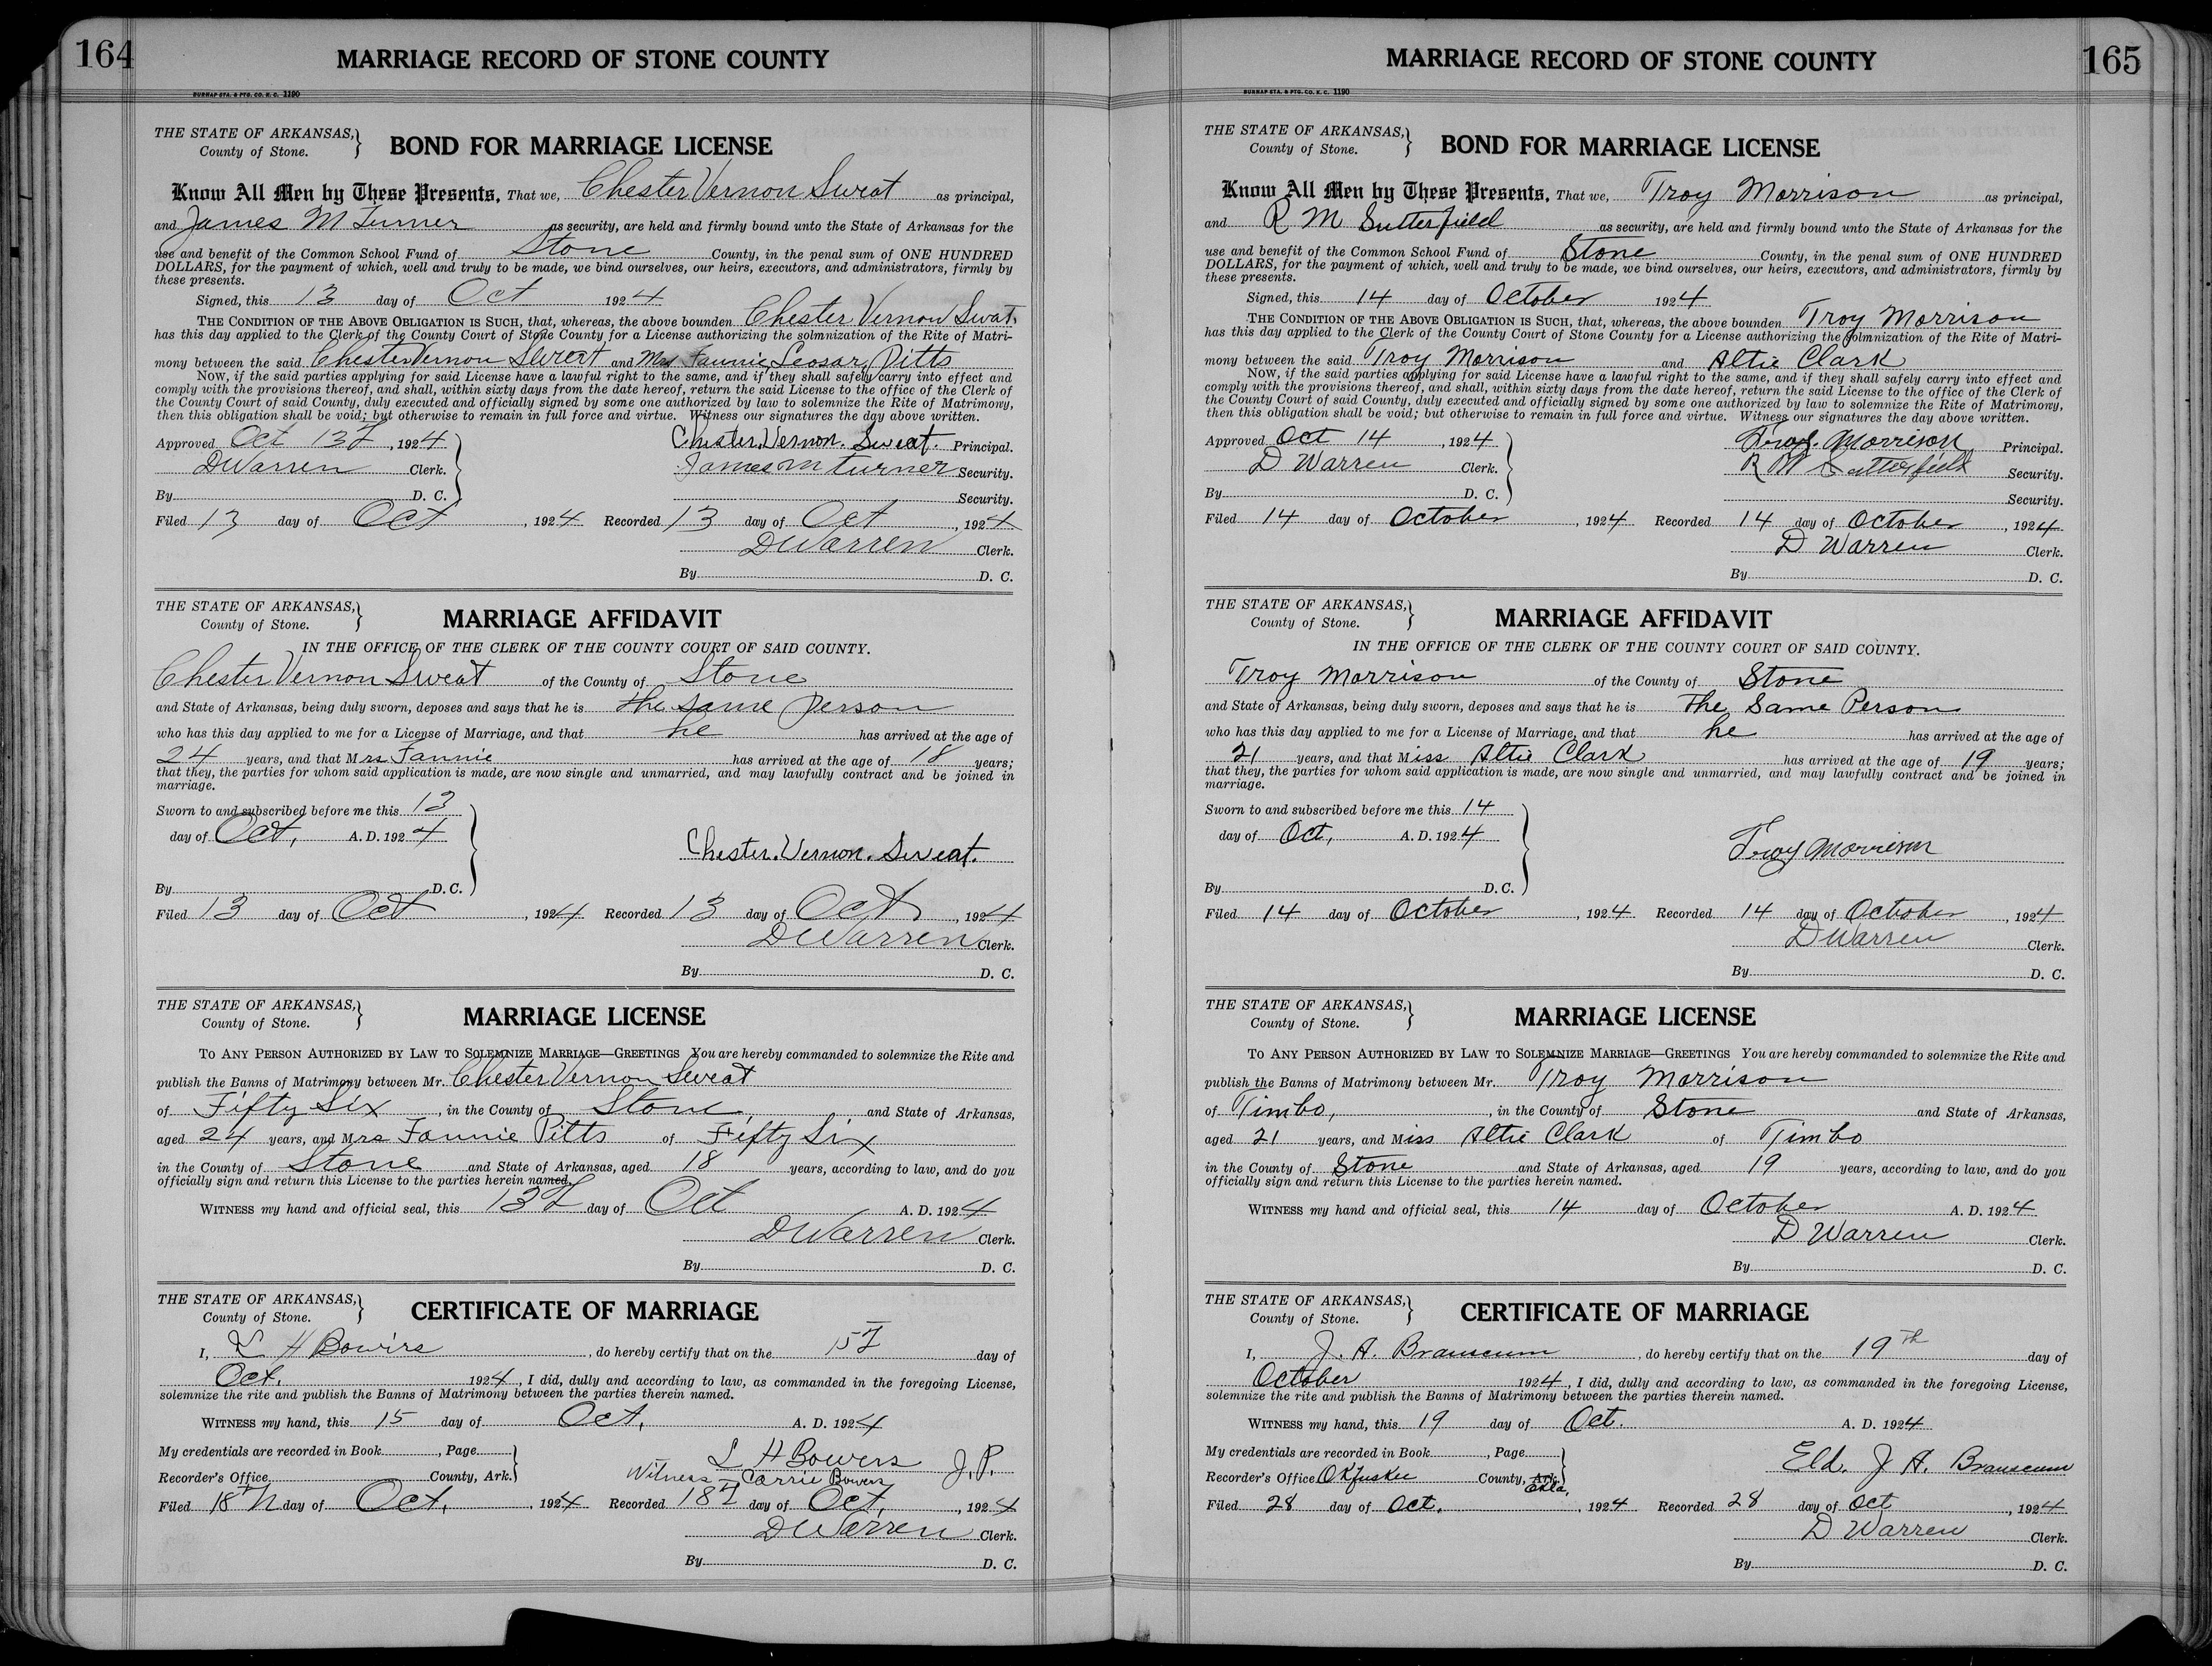 164
MARRIAGE RECORD OF STONE COUNTY
BURNAP STA. & PTG. CO. K. C. 1190
THE STATE OF ARKANSAS,
County of Stone.
BOND FOR MARRIAGE LICENSE
Know All Men by These Presents, That we, Chester Vernon Sweat as principal,
and James M Turner as security, are held and firmly bound unto the State of Arkansas for the
use and benefit of the Common School Fund of Stone County, in the penal sum of ONE HUNDRED
DOLLARS, for the payment of which, well and truly to be made, we bind ourselves, our heirs, executors, and administrators, firmly by
these presents.
Signed, this 13 day of Oct 1924
THE CONDITION OF THE ABOVE OBLIGATION IS SUCH, that, whereas, the above bounden Chester Vernon Swat.
has this day applied to the Clerk of the County Court of Stone County for a License authorizing the solmnization of the Rite of Matri-
mony between the said Chester Vernon Sweat and Mrs Fannie Pitts
Now, if the said parties applying for said License have a lawful right to the same, and if they shall safely carry into effect and
comply with the provisions thereof, and shall, within sixty days from the date hereof, return the said License to the office of the Clerk of
the County Court of said County, duly executed and officially signed by some one authorized by law to solemnize the Rite of Matrimony,
then this obligation shall be void; but otherwise to remain in full force and virtue. Witness our signatures the day above written.
Approved Oct 13, 1924 Chester. Vernon. Sweat. Principal.
D Warren Clerk. James M Turner Security.
By D. C. Security.
Filed 13 day of Oct, 1924 Recorded 13 day of Oct, 1924
D Warren Clerk.
By D. C.
THE STATE OF ARKANSAS,
County of Stone.
MARRIAGE AFFIDAVIT
IN THE OFFICE OF THE CLERK OF THE COUNTY COURT OF SAID COUNTY.
Chester Vernon Sweat of the County of Stone
and State of Arkansas, being duly sworn, deposes and says that he is the same person
who has this day applied to me for a License of Marriage, and that he has arrived at the age of
24 years, and that Mrs Fannie has arrived at the age of 18 years;
that they, the parties for whom said application is made, are now single and unmarried, and may lawfully contract and be joined in
marriage.
Sworn to and subscribed before me this 13
day of Oct, A. D. 1924
Chester. Vernon. Sweat.
By D. C.
Filed 13 day of Oct, 1924 Recorded 13 day of Oct, 1924
D Warren Clerk.
By D. C.
THE STATE OF ARKANSAS,
County of Stone.
MARRIAGE LICENSE
TO ANY PERSON AUTHORIZED BY LAW TO SOLEMNIZE MARRIAGE—GREETINGS You are hereby commanded to solemnize the Rite and
publish the Banns of Matrimony between Mr. Chester Vernon Sweat
of Fifty Six, in the County of Stone, and State of Arkansas,
aged 24 years, and Mrs Fannie Pitts of Fifty Six
in the County of Stone and State of Arkansas, aged 18 years, according to law, and do you
officially sign and return this License to the parties herein named.
WITNESS my hand and official seal, this 13 day of Oct A. D. 1924
D Warren Clerk.
By D. C.
THE STATE OF ARKANSAS,
County of Stone.
CERTIFICATE OF MARRIAGE
I, L H Bowers, do hereby certify that on the 15 day of
Oct. 1924, I did, dully and according to law, as commanded in the foregoing License,
solemnize the rite and publish the Banns of Matrimony between the parties therein named.
WITNESS my hand, this 15 day of Oct, A. D. 1924
My credentials are recorded in Book, Page L H Bowers J. P.
Recorder's Office County, Ark. Witness - Carrie Bowers
Filed 18 day of Oct, 1924 Recorded 18 day of Oct, 1924
D Warren Clerk.
By D. C.
165
MARRIAGE RECORD OF STONE COUNTY
BURNAP STA. & PTG. CO. K. C. 1190
THE STATE OF ARKANSAS,
County of Stone.
BOND FOR MARRIAGE LICENSE
Know All Men by These Presents, That we, Troy Morrison as principal,
and R M Sutterfield as security, are held and firmly bound unto the State of Arkansas for the
use and benefit of the Common School Fund of Stone County, in the penal sum of ONE HUNDRED
DOLLARS, for the payment of which, well and truly to be made, we bind ourselves, our heirs, executors, and administrators, firmly by
these presents.
Signed, this 14 day of October 1924
THE CONDITION OF THE ABOVE OBLIGATION IS SUCH, that, whereas, the above bounden Troy Morrison
has this day applied to the Clerk of the County Court of Stone County for a License authorizing the solmnization of the Rite of Matri-
mony between the said Troy Morrison and Altie Clark
Now, if the said parties applying for said License have a lawful right to the same, and if they shall safely carry into effect and
comply with the provisions thereof, and shall, within sixty days from the date hereof, return the said License to the office of the Clerk of
the County Court of said County, duly executed and officially signed by some one authorized by law to solemnize the Rite of Matrimony,
then this obligation shall be void; but otherwise to remain in full force and virtue. Witness our signatures the day above written.
Approved Oct 14, 1924 Troy. Morrison Principal.
D Warren Clerk. R M Sutterfield Security.
By D. C. Security.
Filed 14 day of October, 1924 Recorded 14 day of October, 1924
D Warren Clerk.
By D. C.
THE STATE OF ARKANSAS,
County of Stone.
MARRIAGE AFFIDAVIT
IN THE OFFICE OF THE CLERK OF THE COUNTY COURT OF SAID COUNTY.
Troy Morrison of the County of Stone
and State of Arkansas, being duly sworn, deposes and says that he is The Same Person
who has this day applied to me for a License of Marriage, and that he has arrived at the age of
21 years, and that Miss Altie Clark has arrived at the age of 19 years;
that they, the parties for whom said application is made, are now single and unmarried, and may lawfully contract and be joined in
marriage.
Sworn to and subscribed before me this 14
day of Oct, A. D. 1924
Troy Morrison
By D. C.
Filed 14 day of October, 1924 Recorded 14 day of October, 1924
D Warren Clerk.
By D. C.
THE STATE OF ARKANSAS,
County of Stone.
MARRIAGE LICENSE
TO ANY PERSON AUTHORIZED BY LAW TO SOLEMNIZE MARRIAGE—GREETINGS You are hereby commanded to solemnize the Rite and
publish the Banns of Matrimony between Mr. Troy Morrison
of Timbo, in the County of Stone and State of Arkansas,
aged 21 years, and Miss Altie Clark of Timbo
in the County of Stone and State of Arkansas, aged 19 years, according to law, and do you
officially sign and return this License to the parties herein named.
WITNESS my hand and official seal, this 14 day of October A. D. 1924
D Warren Clerk.
By D. C.
THE STATE OF ARKANSAS,
County of Stone.
CERTIFICATE OF MARRIAGE
I, J. A. Branscum, do hereby certify that on the 19th day of
October 1924, I did, dully and according to law, as commanded in the foregoing License,
solemnize the rite and publish the Banns of Matrimony between the parties therein named.
WITNESS my hand, this 19 day of Oct. A. D. 1924
My credentials are recorded in Book, Page Eld. J A. Branscum
Recorder's Office Okfuskee County, Ark. Okla,
Filed 28 day of Oct., 1924 Recorded 28 day of Oct, 1924
D Warren Clerk.
By D. C.